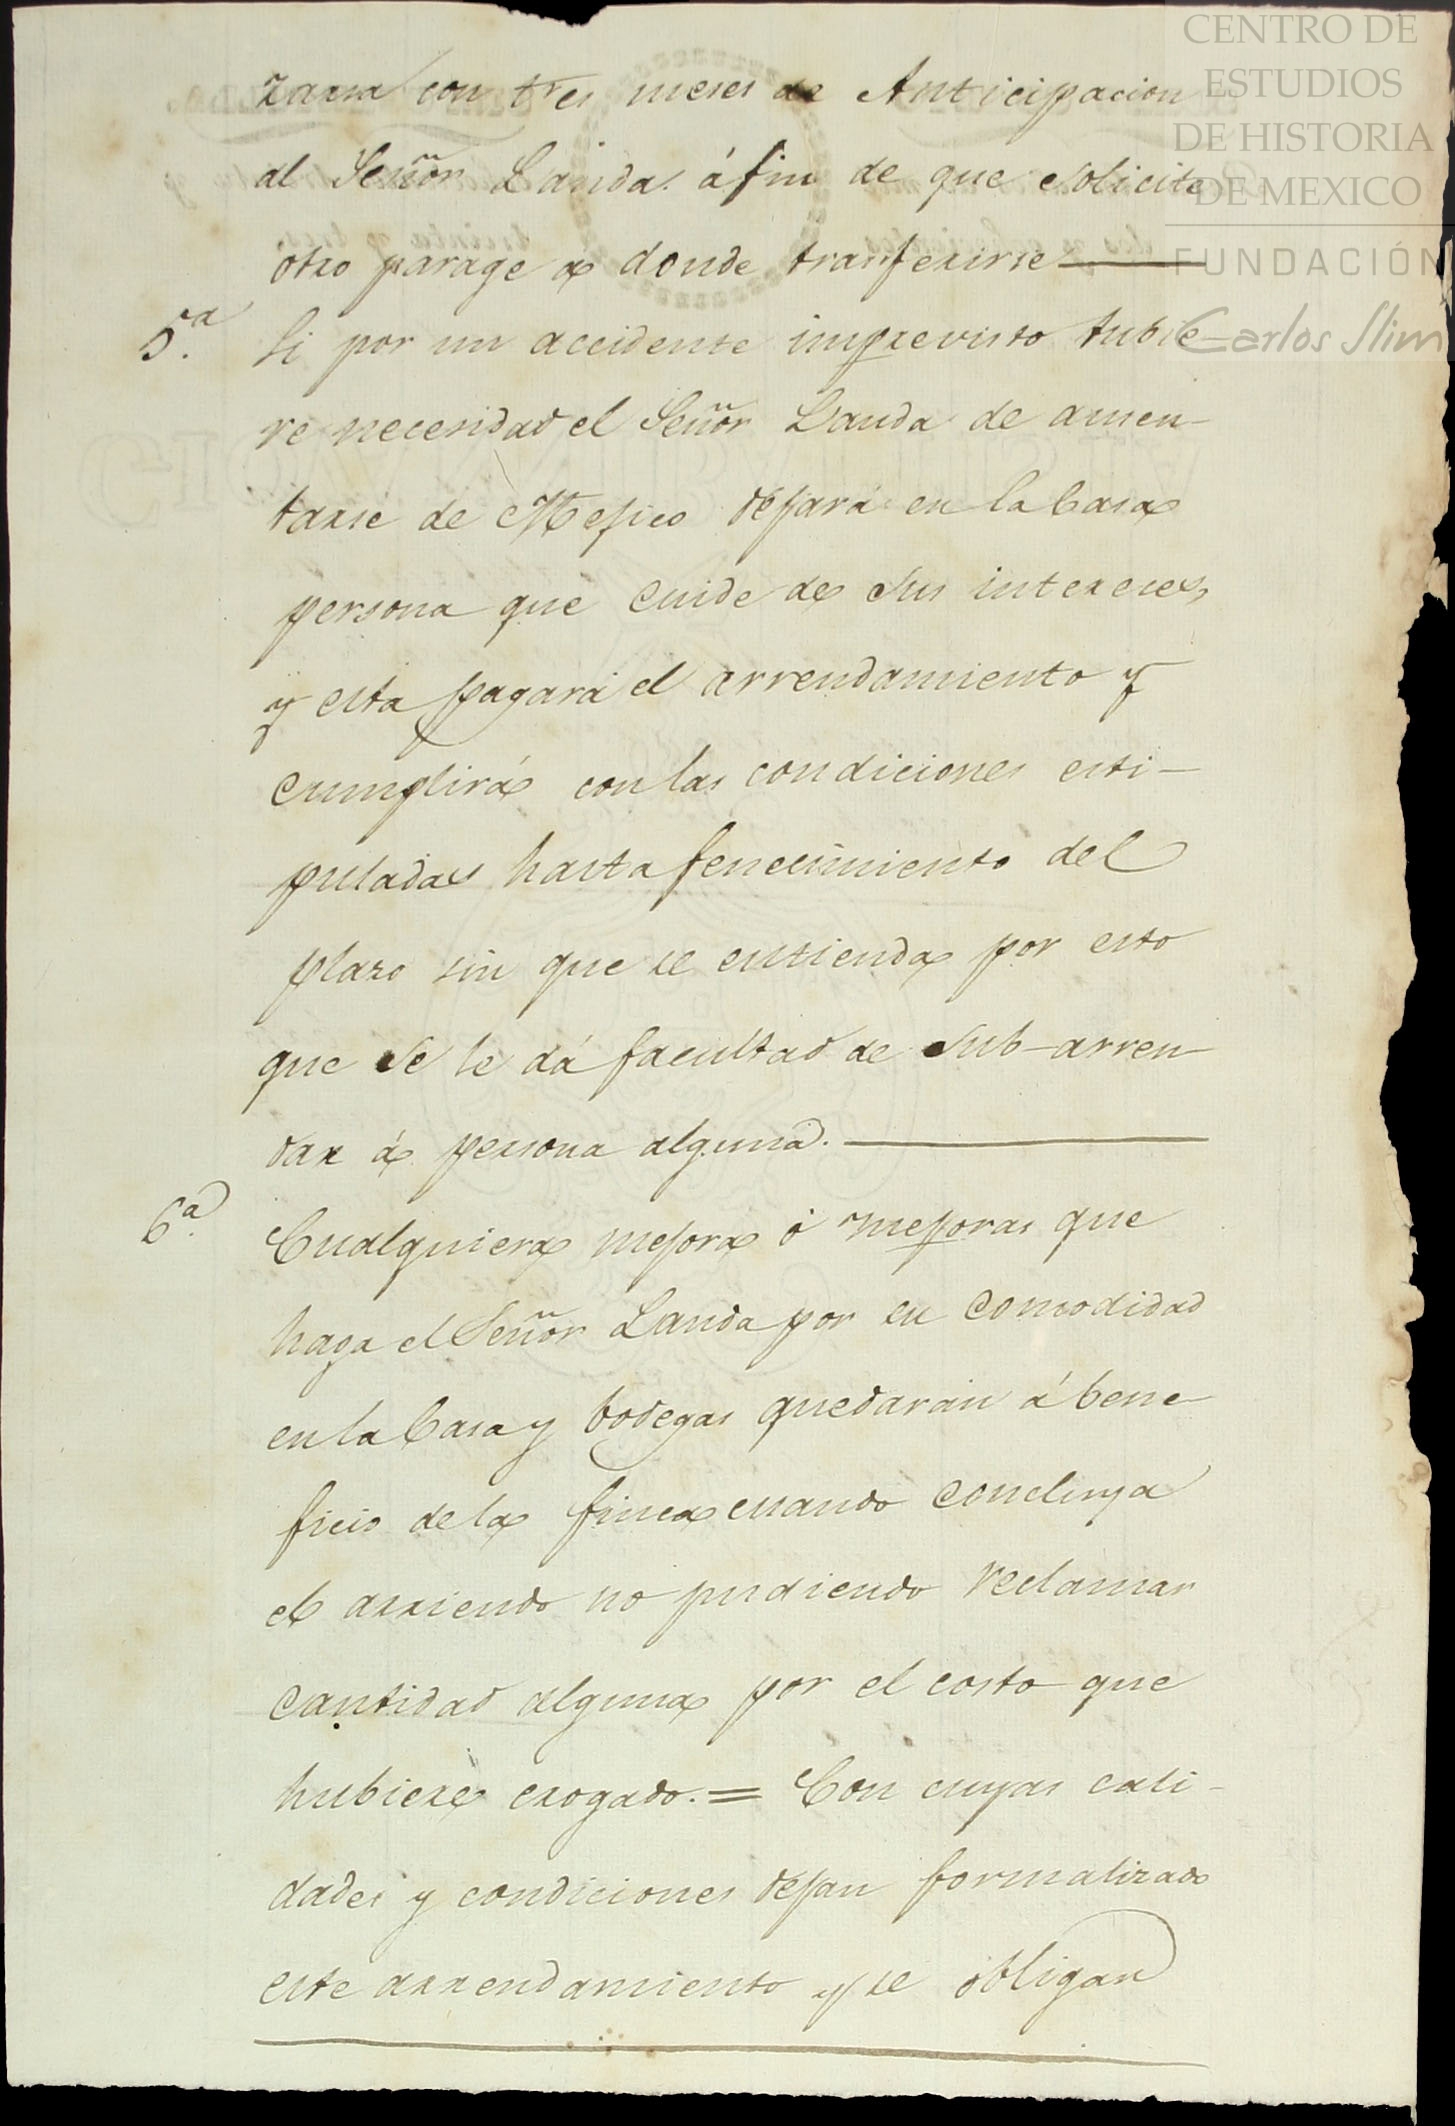 CENTRO DE
ESTUDIOS
DE HISTORIA
DE MEXICO
FUNDACIÓN
Carlos Slim
zarse con tres meses de Anticipacion
al Señor Landa. áfin de que solicite
otro parage a donde tranferirse
5.ª Si por un accidente imprevisto tubie-
re necesidad el Señor Landa de ausen-
tarse de Mejico dejará en la Casa
persona que cuide de sus intereses,
y esta pagará el arrendamiento y
cumplirá con las condiciones esti-
puladas hasta fenecimiento del
plazo sin que se entienda por esto
que se le dá facultad de sub-arren-
dar á persona alguna.
6.ª Cualquiera mejora ó mejoras que
haga el Señor Landa por su comodidad
en la Casa y bodegas quedarán á bene-
ficio de la finca cuando concluya
el arriendo no pudiendo reclamar
cantidad alguna por el costo que
hubiere erogado. = Con cuyas cali-
dades y condiciones dejan formalizado
este arrendamiento y se obligan